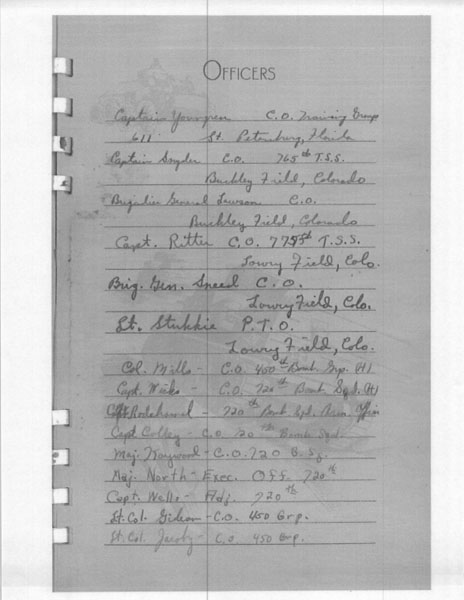 OFFICERS
Captain Youngren C.O. Training Group
611 St. Petersburg, Florida
Captain Snyder C.O. 765th T.S.S.
Buckley Field, Colorado
Brigadier General Lawson C.O.
Buckley Field, Colorado
Capt. Ritter C.O. T.S.S.
Lowry Field, Colo.
Brig. Gen. Sneed C.O.
Lowry Field, Colo.
Lt. Stukkie P.T.O.
Lowry Field, Colo.
Col. Mills - C.O. 450th Bomb Grp. (H)
Capt. - C.O. 720th Bomb Sqd. (H)
- 720th Bomb Sqd.
Capt. Colley - C.O. 20th Bomb Sqd.
Maj. Haywood - C.O. 720 B. Sq.
Maj. North - Exec. Off. 720th
Capt. Wells - Adj. 720th
Lt. Col. Gideon - C.O. 450 Grp.
Lt. Col. Jacoby - C.O. 450 Grp.